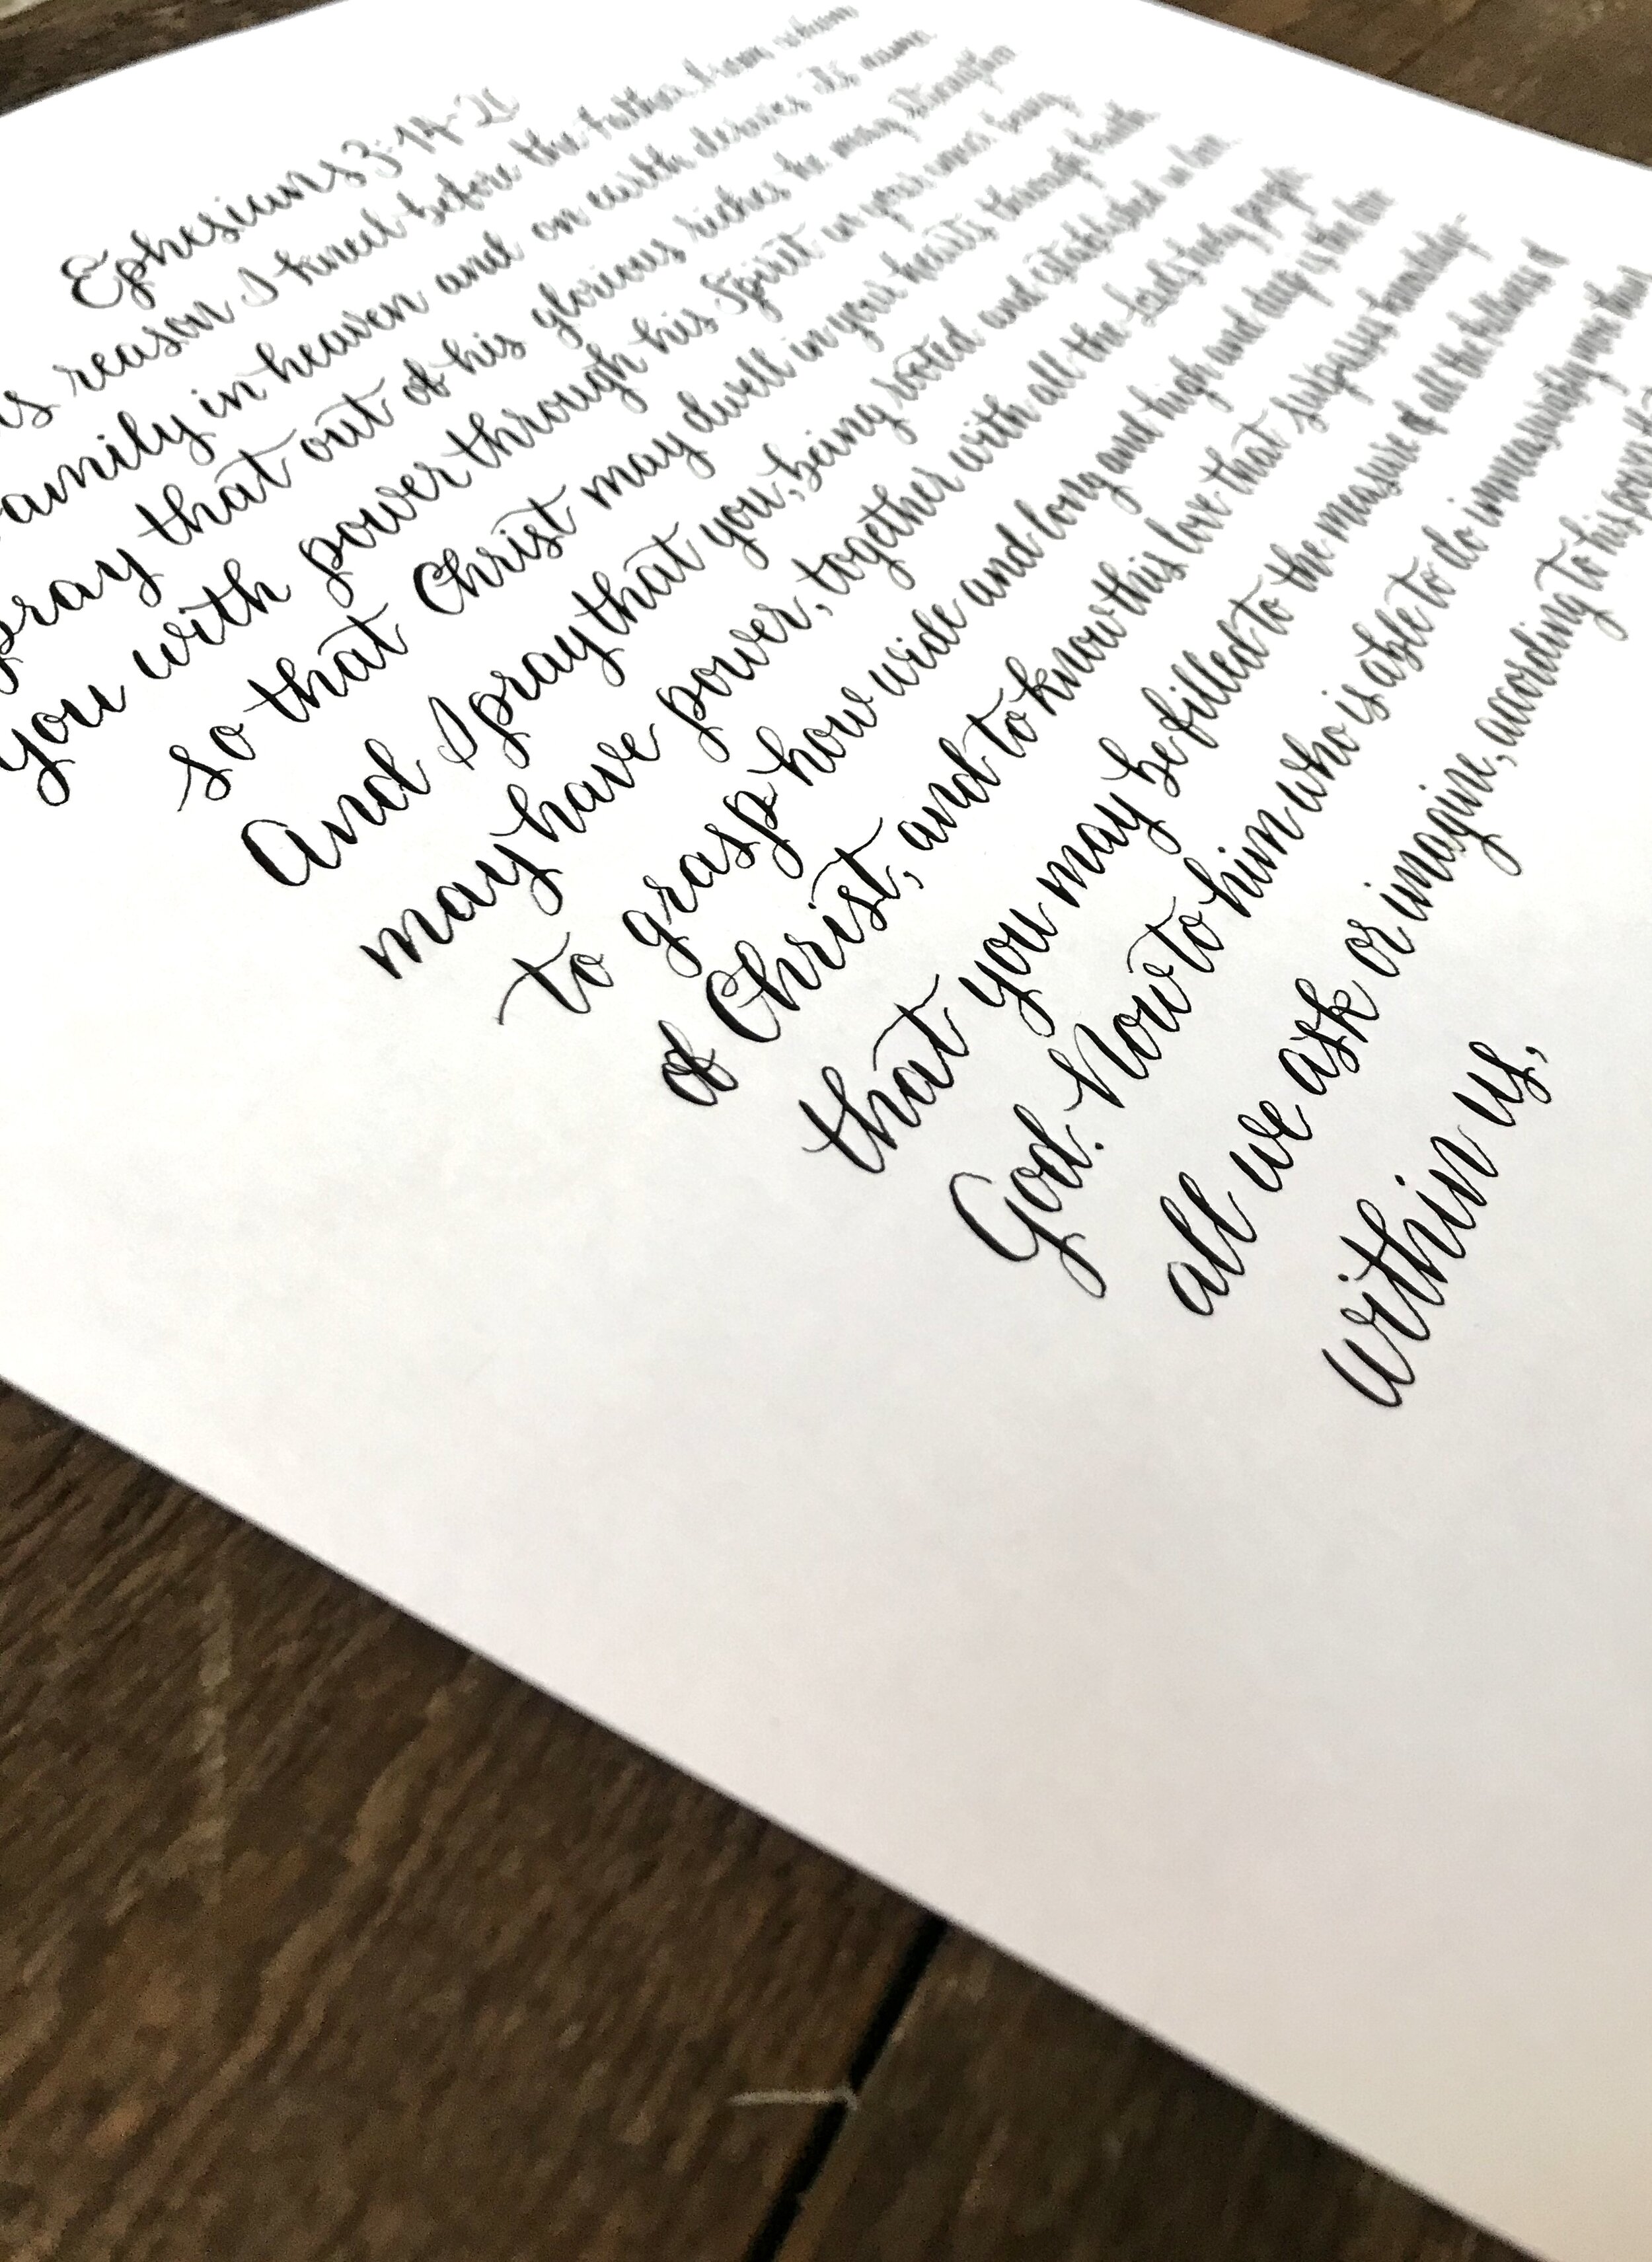 Ephesians 3:14-21
is reason I kneel before the father, from whom
family in heaven and on earth derives its name.
pray that out of his glorious riches he may strengthen
you with power through his Spirit in your inner being,
so that Christ may dwell in your hearts through faith.
And I pray that you, being rooted and established in love,
may have power, together with all the Lord's holy people,
to grasp how wide and long and high and deep is the love
of Christ, and to know this love that surpasses knowledge-
that you may be filled to the measure of all the fullness of
God. Now to him who is able to do immeasurably more than
all we ask or imagine, according to his power
within us,